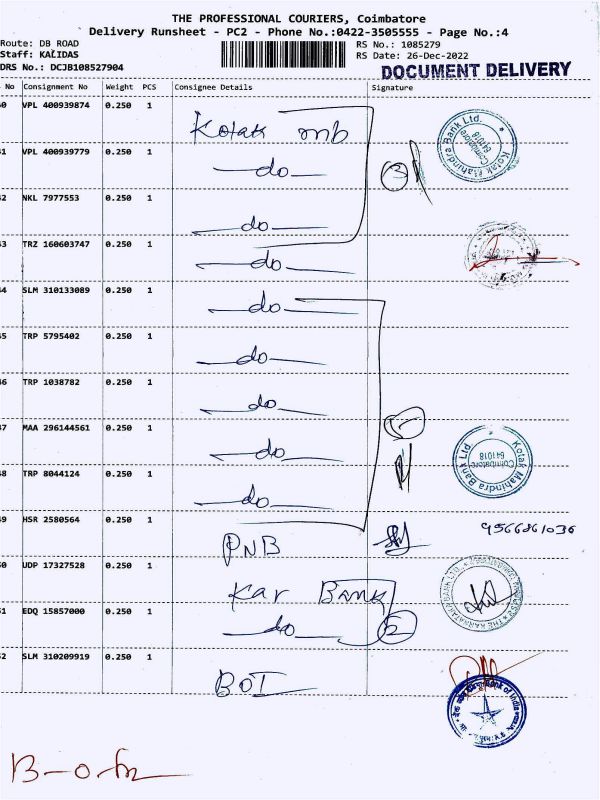 THE PROFESSIONAL COURIERS, Coimbatore
Delivery Runsheet - PC2 - Phone No.:0422-3505555 - Page No.:4
Route: DB ROAD
RS No.: 1085279
Staff: KALIDAS
RS Date: 26-Dec-2022
DRS No.: DCJB108527904
DOCUMENT DELIVERY
No Consignment No Weight PCS Consignee Details Signature
0 VPL 400939874 0.250 1 Kotak mb
1 VPL 400939779 0.250 1 do
2 NKL 7977553 0.250 1 do
3 TRZ 160603747 0.250 1 do
4 SLM 310133089 0.250 1 do
5 TRP 5795402 0.250 1 do
6 TRP 1038782 0.250 1 do
7 MAA 296144561 0.250 1 do
8 TRP 8044124 0.250 1 do
9 HSR 2580564 0.250 1 PNB 9566861036
0 UDP 17327528 0.250 1 Kar Bank
1 EDQ 15857000 0.250 1 do 2
2 SLM 310209919 0.250 1 BOI
3
Kotak Mahindra Bank Ltd.
Coimbatore
641018
Kotak Mahindra Bank Ltd
Coimbatore
641018
THE KARNATAKA BANK LTD.
Bank of India